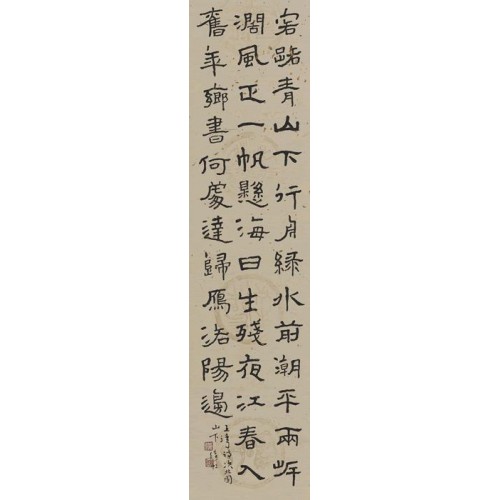 客路青山下行舟綠水前潮平兩岸
闊風正一帆懸海日生殘夜江春入
舊年鄉書何處達歸鴈洛陽邊
王灣詩次北固
山下